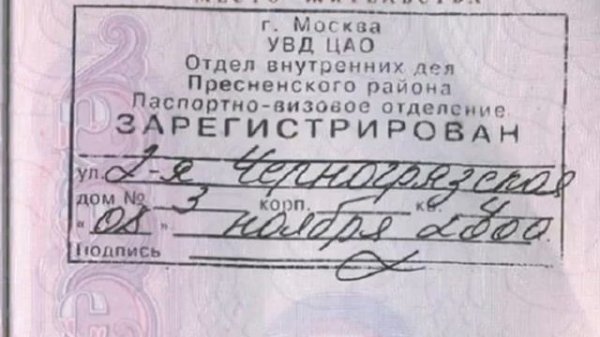 МЕСТО ЖИТЕЛЬСТВА
г. Москва
УВД ЦАО
Отдел внутренних дел
Пресненского района
Паспортно-визовое отделение
ЗАРЕГИСТРИРОВАН
ул. 2-я Черногрязская
дом № 3 корп. кв. 4
"08" ноября 2000
Подпись